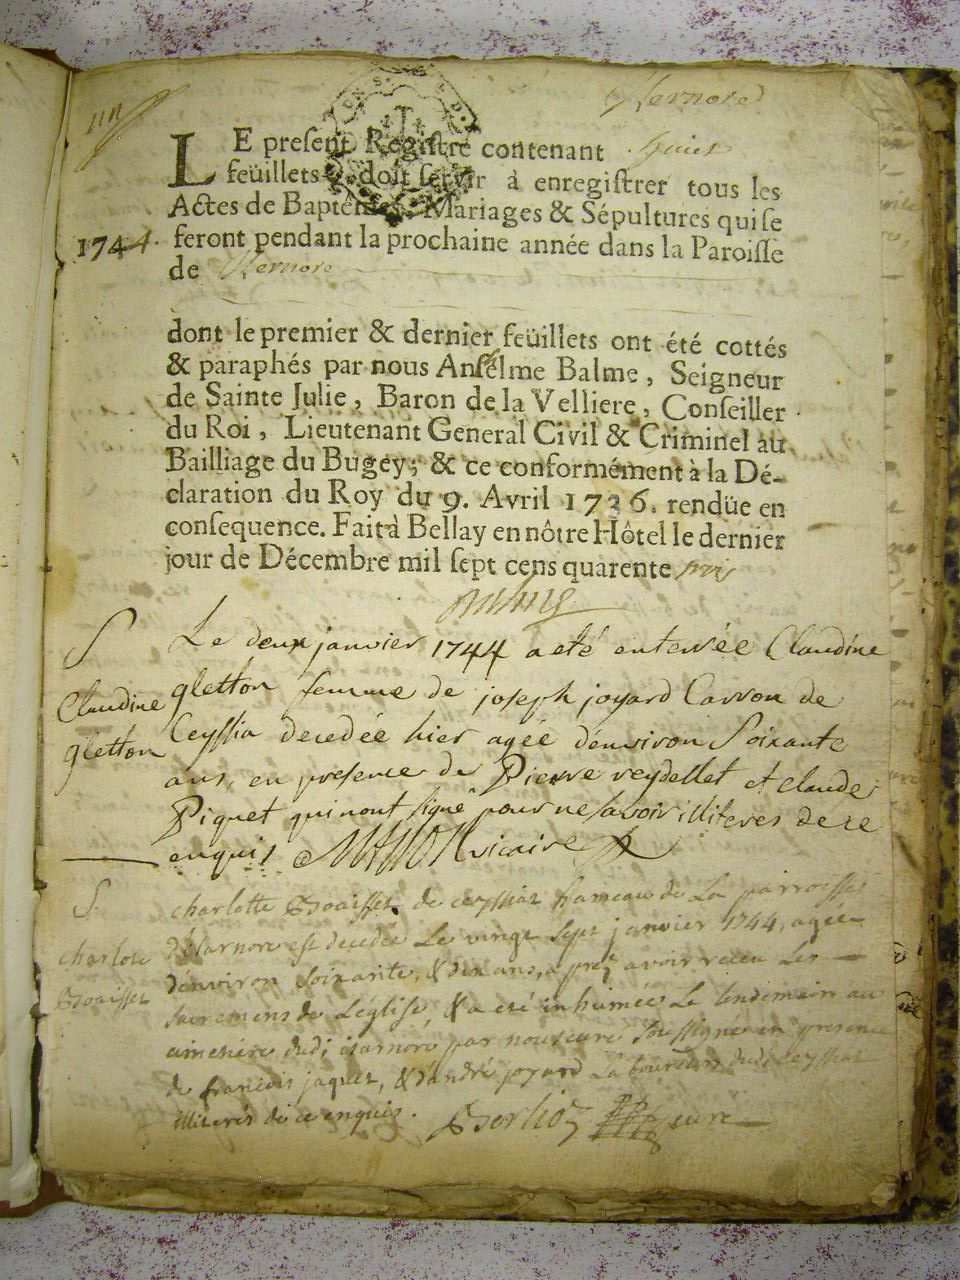 LE present Registre contenant huict
feüillets, doit servir à enregistrer tous les
Actes de Baptêmes, Mariages & Sépultures qui se
1744. feront pendant la prochaine année dans la Paroisse
de
dont le premier & dernier feüillets ont été cottés
& paraphés par nous Anselme Balme, Seigneur
de Sainte Julie, Baron de la Velliere, Conseiller
du Roi, Lieutenant General Civil & Criminel au
Bailliage du Bugey; & ce conformément à la Dé-
claration du Roy du 9. Avril 1736. rendüe en
consequence. Fait à Bellay en nôtre Hôtel le dernier
jour de Décembre mil sept cens quarente trois
Balme
S
Claudine
gletton
Le deux janvier 1744 a eté enterrée Claudine
gletton femme de joseph joyard Carron de
Ceyssia decedée hier agée d'environ Soixante
ans, en presence de Pierre reydellet et claude
Piquet qui n'ont signé pour ne savoir illiteres de ce
enquis vicaire
S.
charlote
Boaisset
charlotte Boaisset de ceyssiat hameau de La parroisse
d'izarnore est decedée Le vingt sept janvier 1744, agée
d'environ Soixante, & dix ans, aprez avoir receu Les
sacremens de L'église, & a eté inhumée Le lendemain au
cimetière dudi izarnore par nous curé Soussigné en presence
de francois jaquet, & d'andré joyard Laboureurs dudi Ceyssiat
illiterés de ce enquis. Berlioz curé